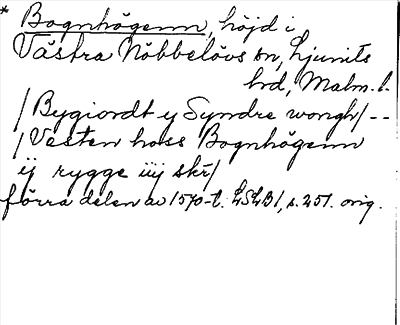 * Bognhögenn, höjd i
Västra Nöbbelövs sn, Ljunits
hrd, Malm. l.
/Bygiordt y Syndre wongh/--
/Vesten hoss Bognhögenn
ij rygge iiij skr/
förra delen av 1570-t. LSLB1, s. 251. orig.